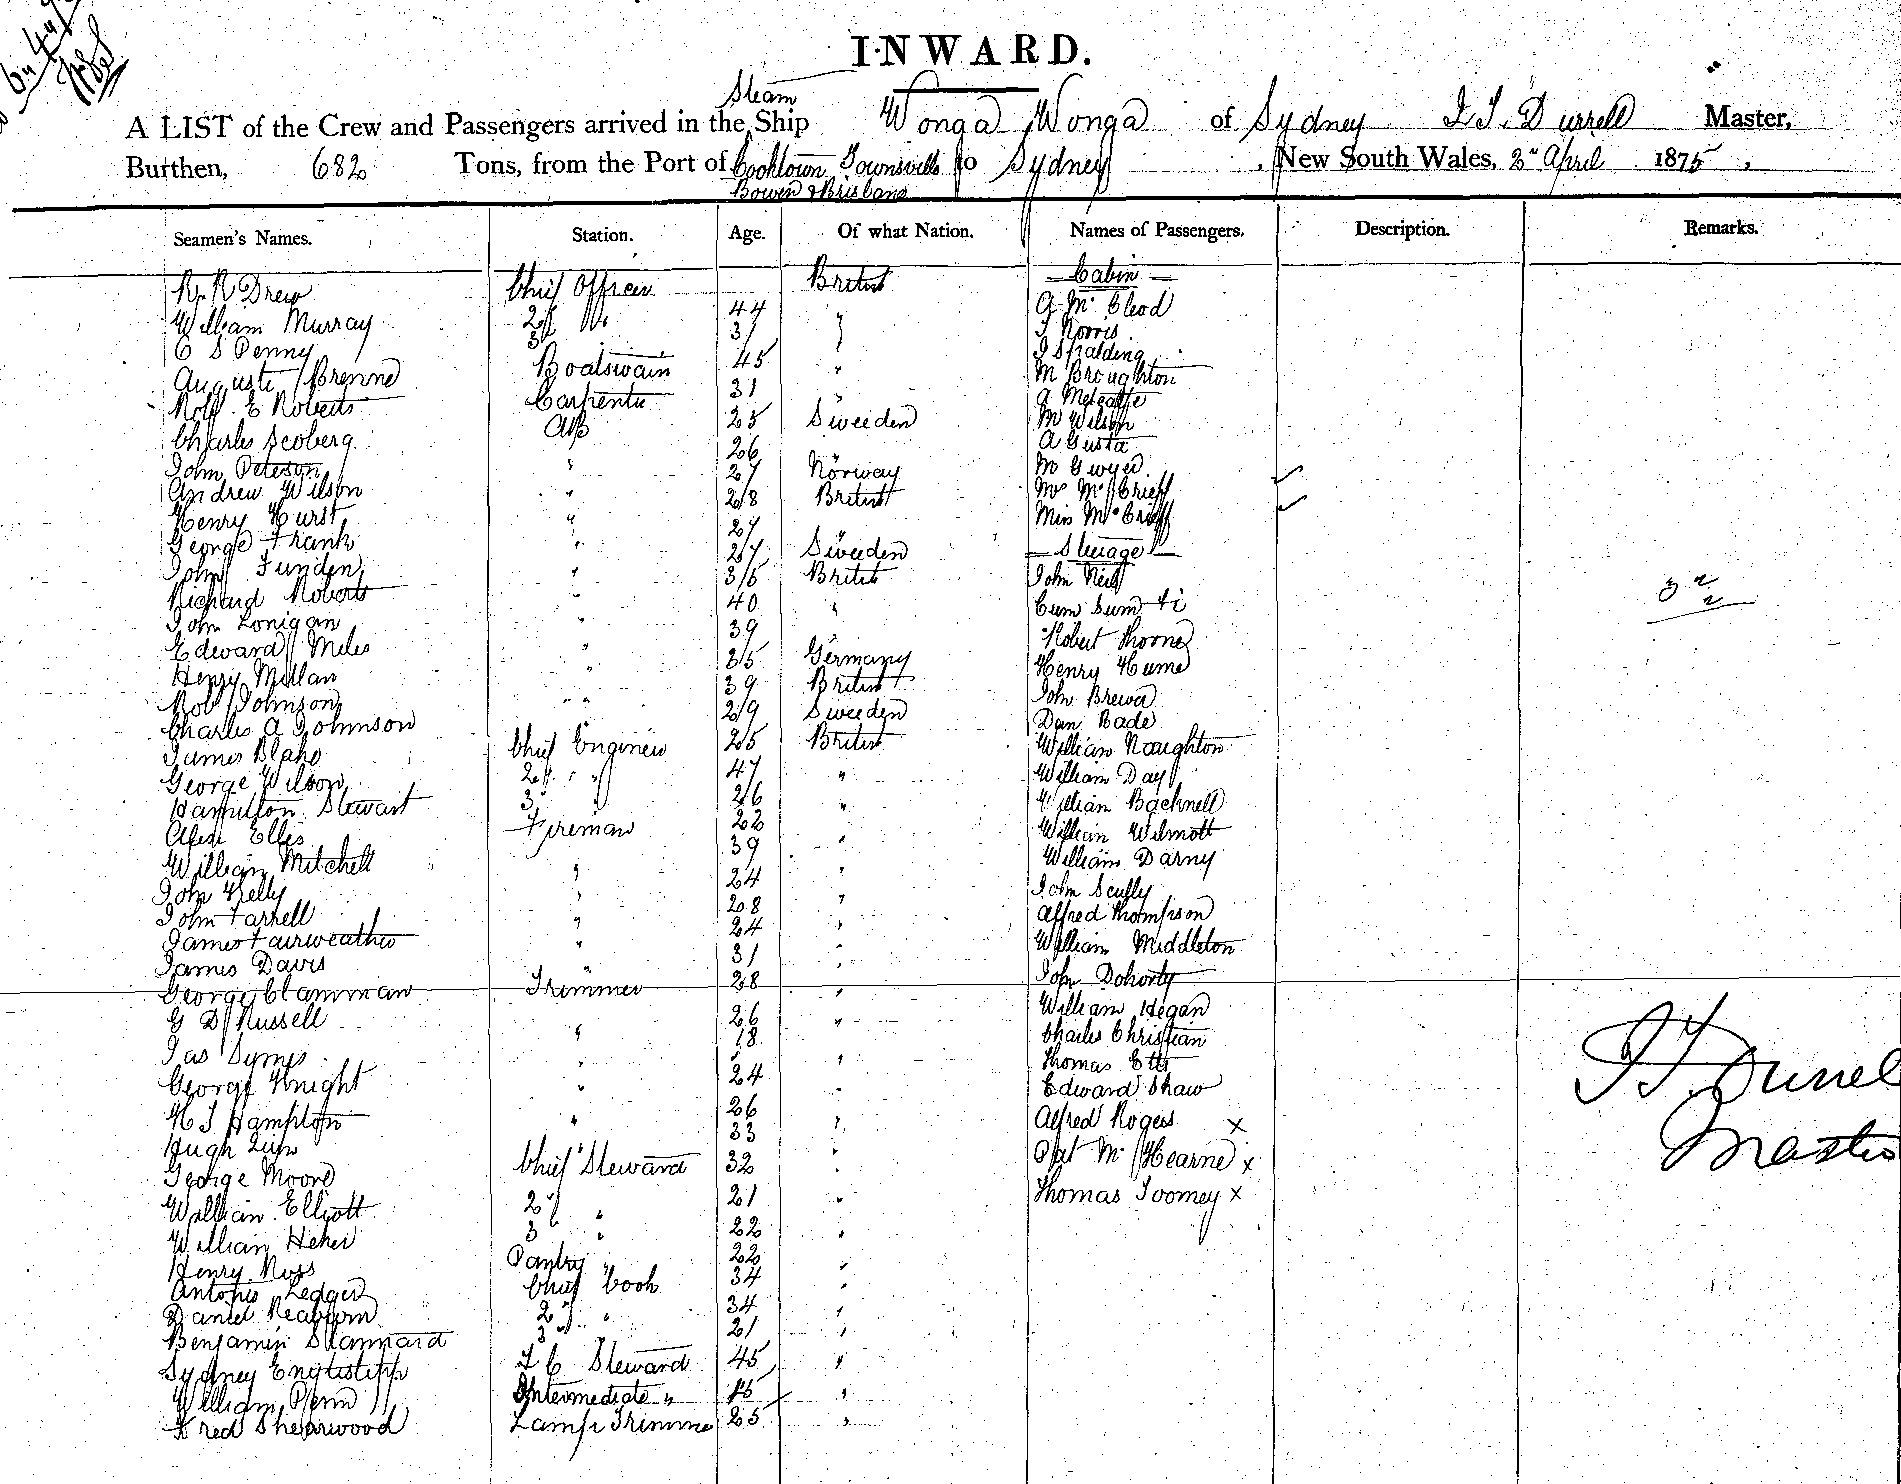 INWARD.
Steam
A LIST of the Crew and Passengers arrived in the Ship Wonga Wonga of Sydney J S. Durrell Master,
Burthen, 682 Tons, from the Port of Cooktown Townsville to Sydney, New South Wales, 2nd April 1875,
Bowen & Brisbane
Seamen's Names. Station. Age. Of what Nation. Names of Passengers. Description. Remarks.
R. R Drew Chief Officer British Cabin
William Murray 2d Do 44 " G Mc Cleod
C S Penny 3d 31 " J Norris
J Spalding
Auguste Brenne Boatswain 45 " M Broughton
Rolf. E Roberts Carpenter 31 " A Metcalfe
Charles Seoberg AB 25 Sweeden M Wilson
John Peterson " 26 A Gusta
Andrew Wilson " 27 Norway M Gwyer
Henry Hurst " 28 British Mrs McCrieff
George Frank " 27 Miss McCrieff
John Funden " 27 Sweeden Steerage
Richard Roberts " 36 British John Neil
John Lonigan 40 " Cum Sum Ti
Edward Miles " 39 Robert Thorne
Henry Millan " 35 Germany Henry Hume
Rob Johnson 39 British John Brewer
Charles A Johnson " " 29 Sweeden Dan Bade
James Blake Chief Engineer 25 British William Naughton
George Wilson 2d " " 47 " William Day
Hamilton Stewart 3 " 26 " William Backnell
Alex Ellis Fireman 22 William Wilmott
William Mitchell 39 " William Darny
John Kelly " 24 " John Scully
John Farrell " 28 " Alfred Thompson
James Fairweather " 24 " William Middleton
James Davis " 31 " John Dohorty
George Clamman Trimmer 28 " William Hegan
G D Russell " 26 " Charles Christian
Jas Symes " 18 " Thomas Etts
George Knight " 24 " Edward Shaw
H J Hampton " 26 " Alfred Rogers x
Hugh 33 " Pat Mc Hearne x
George Moore Chief Steward 32 " Thomas Toomey x
William Elliott 2d " 21 "
William Heher 3 " 22 "
Henry Ross Pantry " 22 "
Antonio Ledger Chief Cook 34 "
Daniel 2d " 34 "
Benjamin Stannard 3 21 "
Sydney F C Steward 45 "
William Penn Intermediate " "
Fred Shearwood Lamp Trimmer 25 "
J S. Durrell
Master